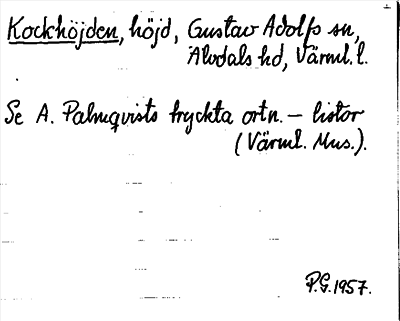 Kockhöjden, höjd, Gustav Adolfs sn,
Älvdals hd, Värml. l.
Se A. Palmqvists tryckta ortn. – listor
(Värml. Mus.).
P.G. 1957.